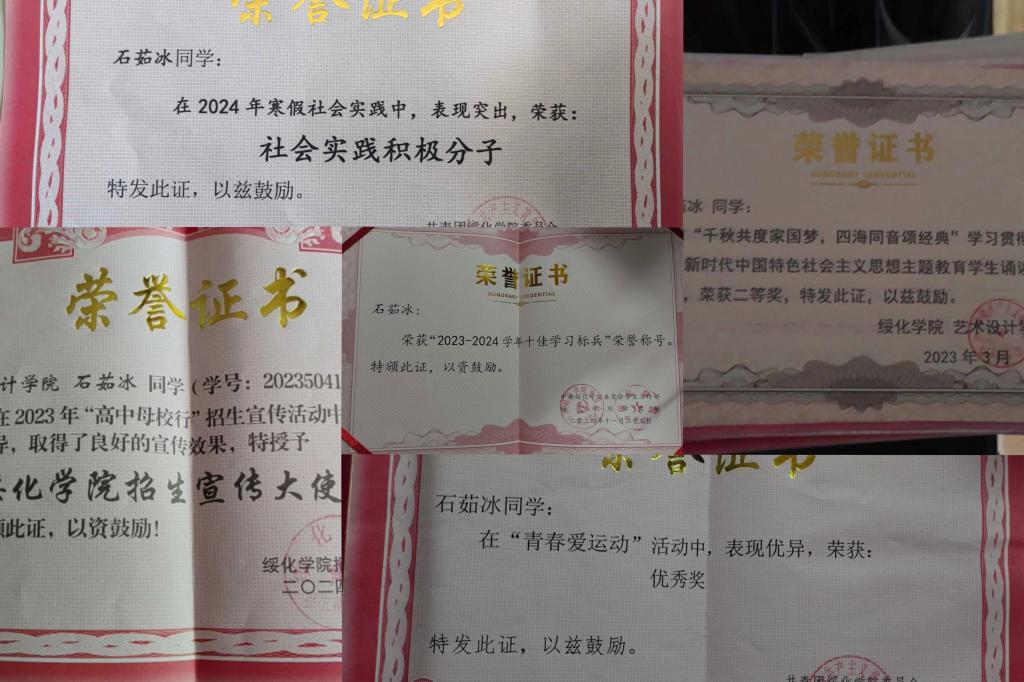 荣誉证书
石茹冰同学：
在2024年寒假社会实践中，表现突出，荣获：
社会实践积极分子
特发此证，以兹鼓励。
共青团绥化学院委员会
荣誉证书
HONORARY CREDENTIAL
冰 同学：
“千秋共度家国梦，四海同音颂经典”学习贯彻
新时代中国特色社会主义思想主题教育学生诵读
，荣获二等奖，特发此证，以兹鼓励。
绥化学院 艺术设计学
2023年3月
荣誉证书
计学院 石茹冰 同学（学号：20235041
在2023年“高中母校行”招生宣传活动中
异，取得了良好的宣传效果，特授予
化学院招生宣传大使
颁此证，以资鼓励！
绥化学院招
二〇二四
荣誉证书
HONORARY CREDENTIAL
石茹冰：
荣获“2023-2024学年十佳学习标兵”荣誉称号。
特颁此证，以资鼓励。
荣誉证书
石茹冰同学：
在“青春爱运动”活动中，表现优异，荣获：
优秀奖
特发此证，以兹鼓励。
共青团绥化学院委员会